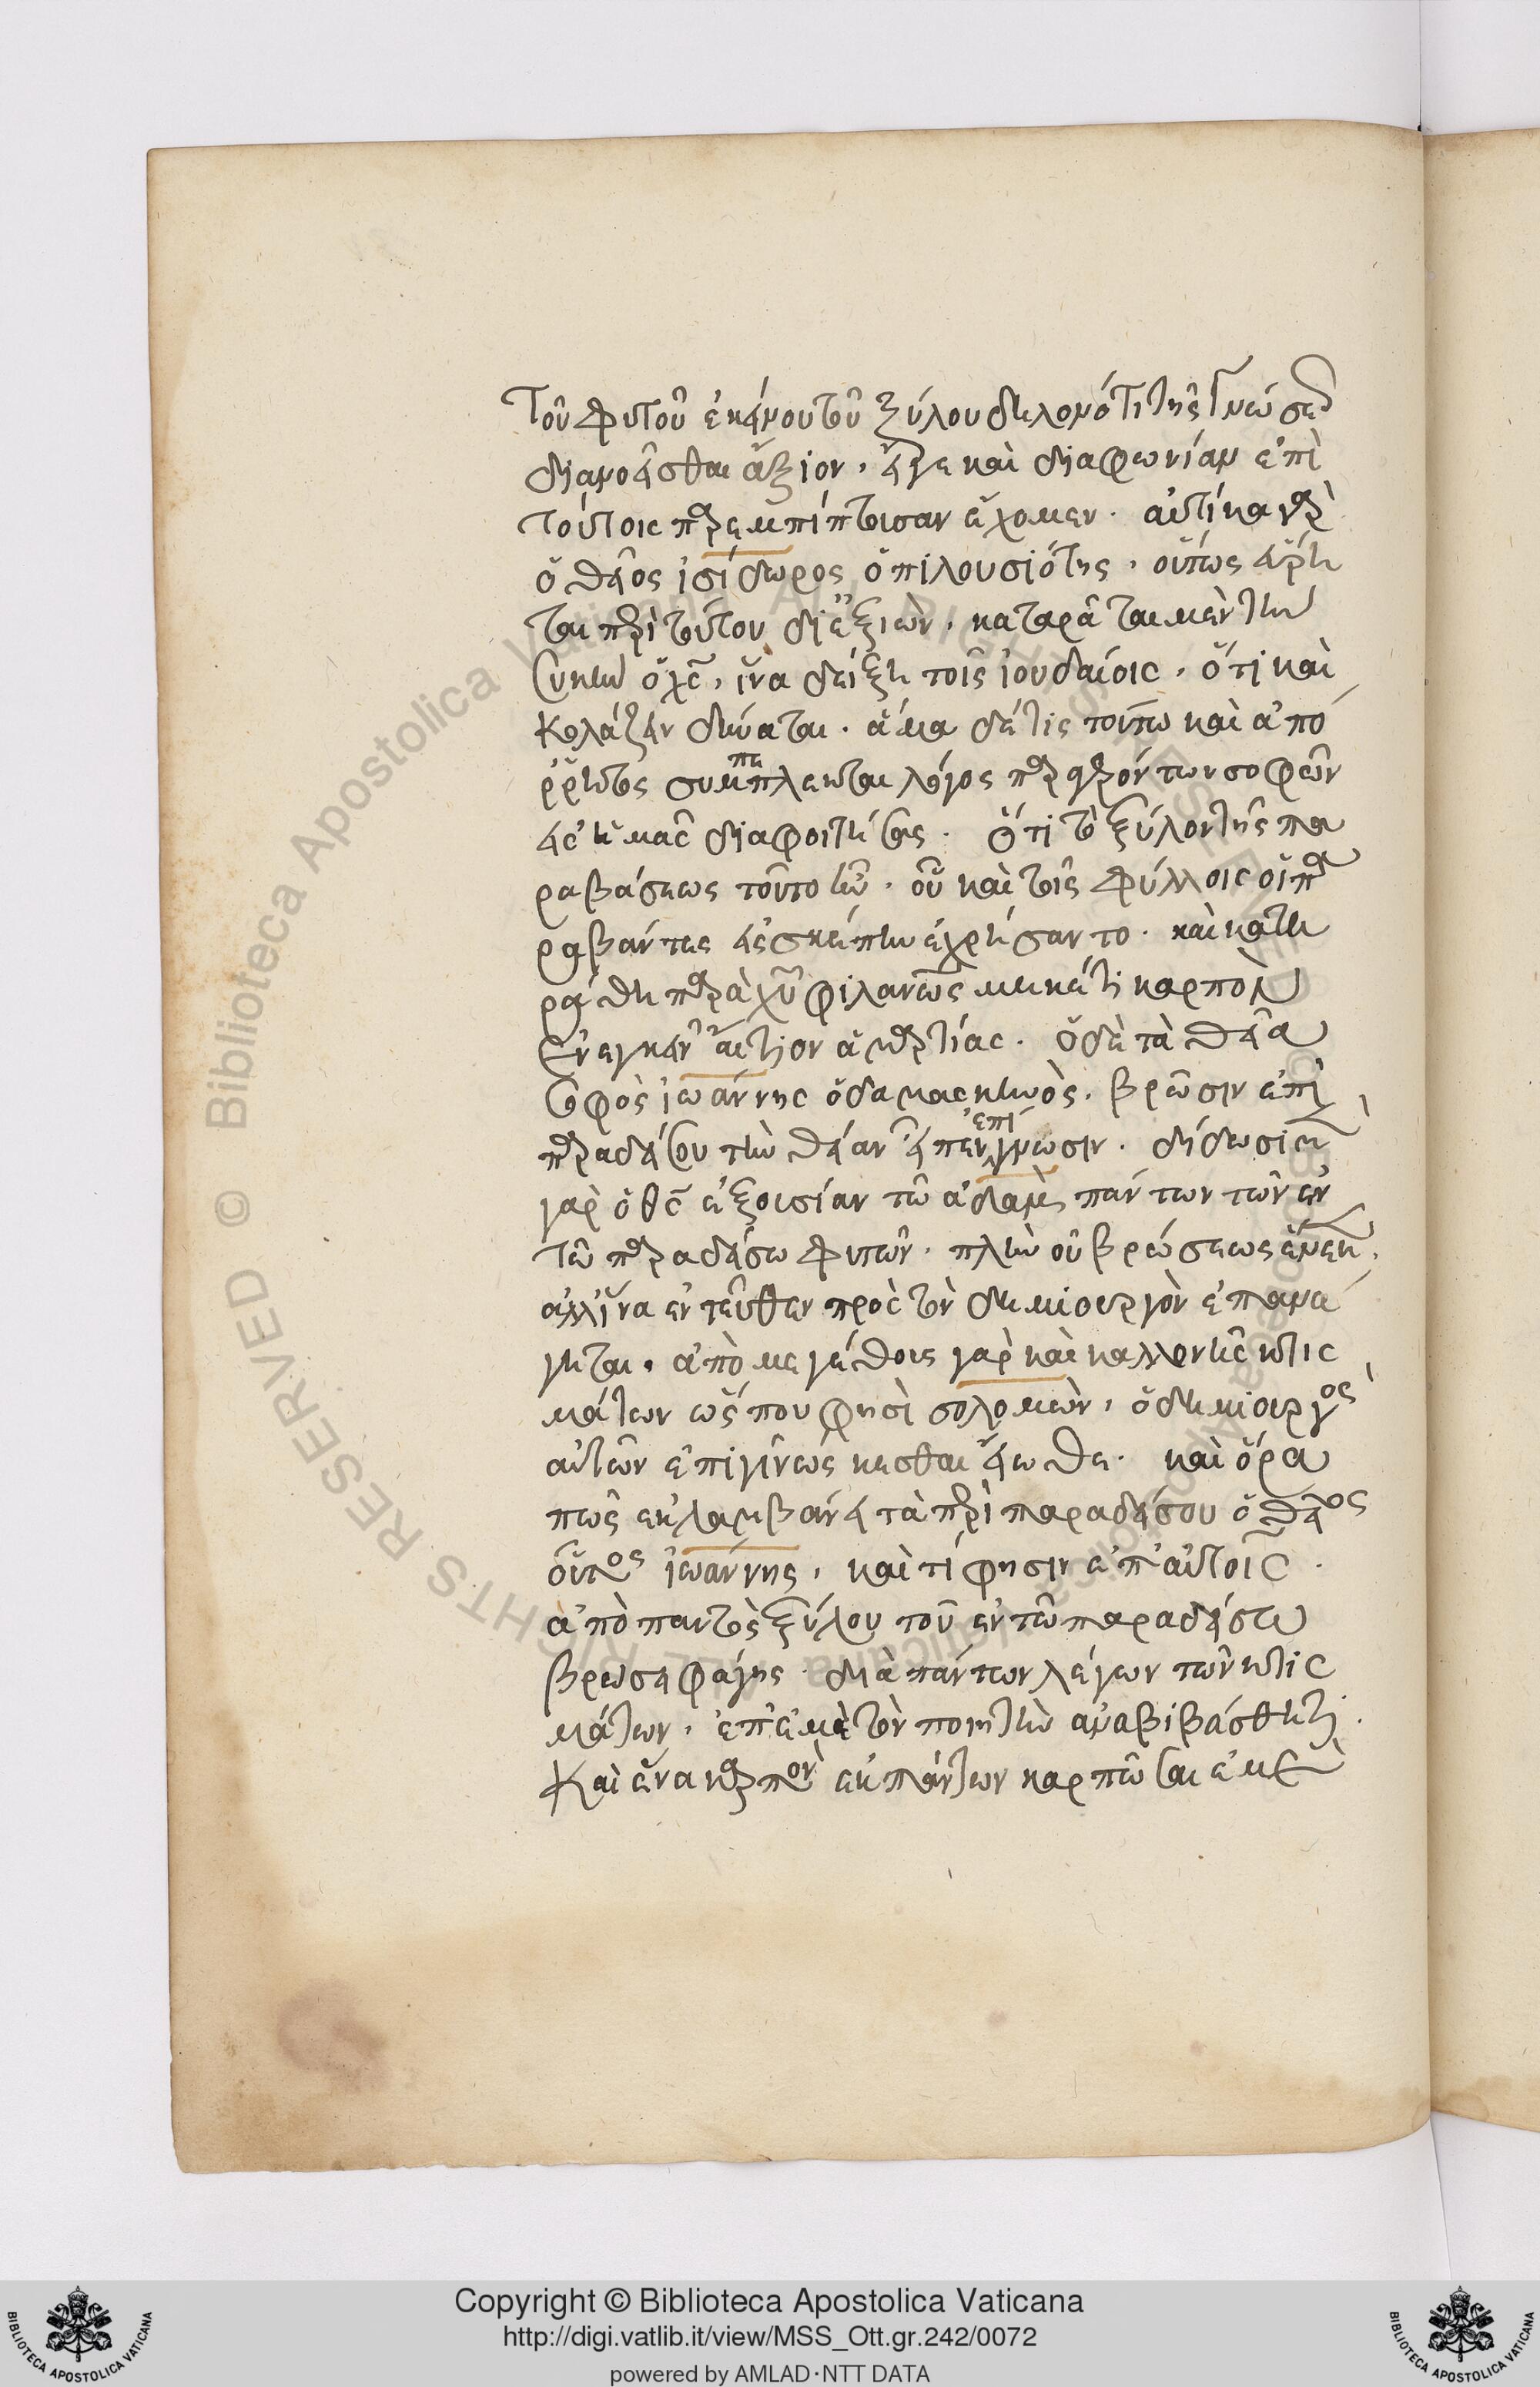 Τοῦ φυτοῦ ἐκείνου τοῦ ξύλου δηλονότι τῆς γνώσεως
διανοεῖσθαι ἄξιον, εἴγε καὶ διαφωνίαν ἐπὶ
τούτοις παρεμπίπτουσαν ἔχομεν. αὐτίκα γὰρ
ὁ θεῖος ἰσίδωρος ὁ πιλουσιότης, οὕπως εἴρη
ται περὶ τούτου διεξιὼν, καταρᾶται μὲν τὴν
συκῆν ὁ χς, ἵνα δείξη τοῖς ἰουδαίοις, ὅτι καὶ
κολάζειν δύναται. ἅμα δέ τις τούτω καὶ ἀπό
ρρητος συμπέπλεκται λόγος παρὰ γερόντων σοφῶν
εἰς ἡμᾶς διαφοιτήσας. Ὅτι τὸ ξύλον τῆς πα
ραβάσεως τοῦτο ἦν, οὗ καὶ τοῖς φύλλοις οἱ πα
ραβάντες εἰς σκέπην ἐχρήσαντο. καὶ κατη
ράθη παρὰ χυ φιλανως μηκέτι καρπὸν
ἐνεγκεῖν αἴτιον ἁμαρτίας. ὁ δὲ τὰ θεῖα
σοφὸς ἰωάννης ὁ δαμασκηνὸς, βρῶσιν ἐπὶ
παραδείσου τὴν θείαν εἶπεν ἐπίγνωσιν. δίδωσι
γὰρ ὁ θς ἐξουσίαν τῶ ἀδὰμ πάντων τῶν ἐν
τῶ παραδείσω φυτῶν, πλὴν οὐ βρώσεως ἕνεκα,
ἀλλ' ἵνα ἐντεῦθεν πρὸς τὸν δημιουργὸν ἐπανά
γηται. ἀπὸ μεγέθους γὰρ καὶ καλλονῆς κτισ
μάτων ὥς που φησὶ σολομὼν, ὁ δημιουργὸς
αὐτῶν ἐπιγινώσκεσθαι εἴωθε. καὶ ὅρα
πῶς ἐκλαμβάνει τὰ περὶ παραδείσου ὁ θεῖος
οὗτος ἰωάννης, καὶ τί φησιν ἐπ' αὐτοῖς.
ἀπὸ παντὸς ξύλου τοῦ ἐν τῶ παραδείσω
βρώσει φάγης. διὰ πάντων λέγων τῶν κτισ
μάτων, ἐπ' ἐμὲ τὸν ποιητὴν ἀναβιβάσθητι.
Καὶ ἕνα καρπὸν ἐκ πάντων καρπῶσαι ἐμὲ
Copyright © Biblioteca Apostolica Vaticana
http://digi.vatlib.it/view/MSS_Ott.gr.242/0072
powered by AMLAD·NTT DATA